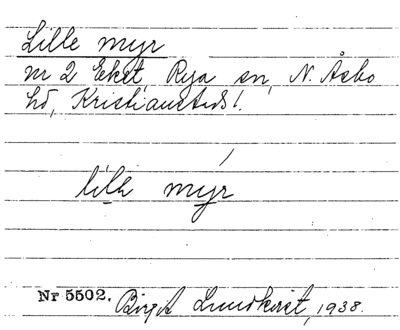 Lille myr
nr 2 Eket, Rya sn, N. Åsbo
hd, Kristianstads l.
lilẹ mýr
Nr 5502. Birgit Lundkvist, 1938.